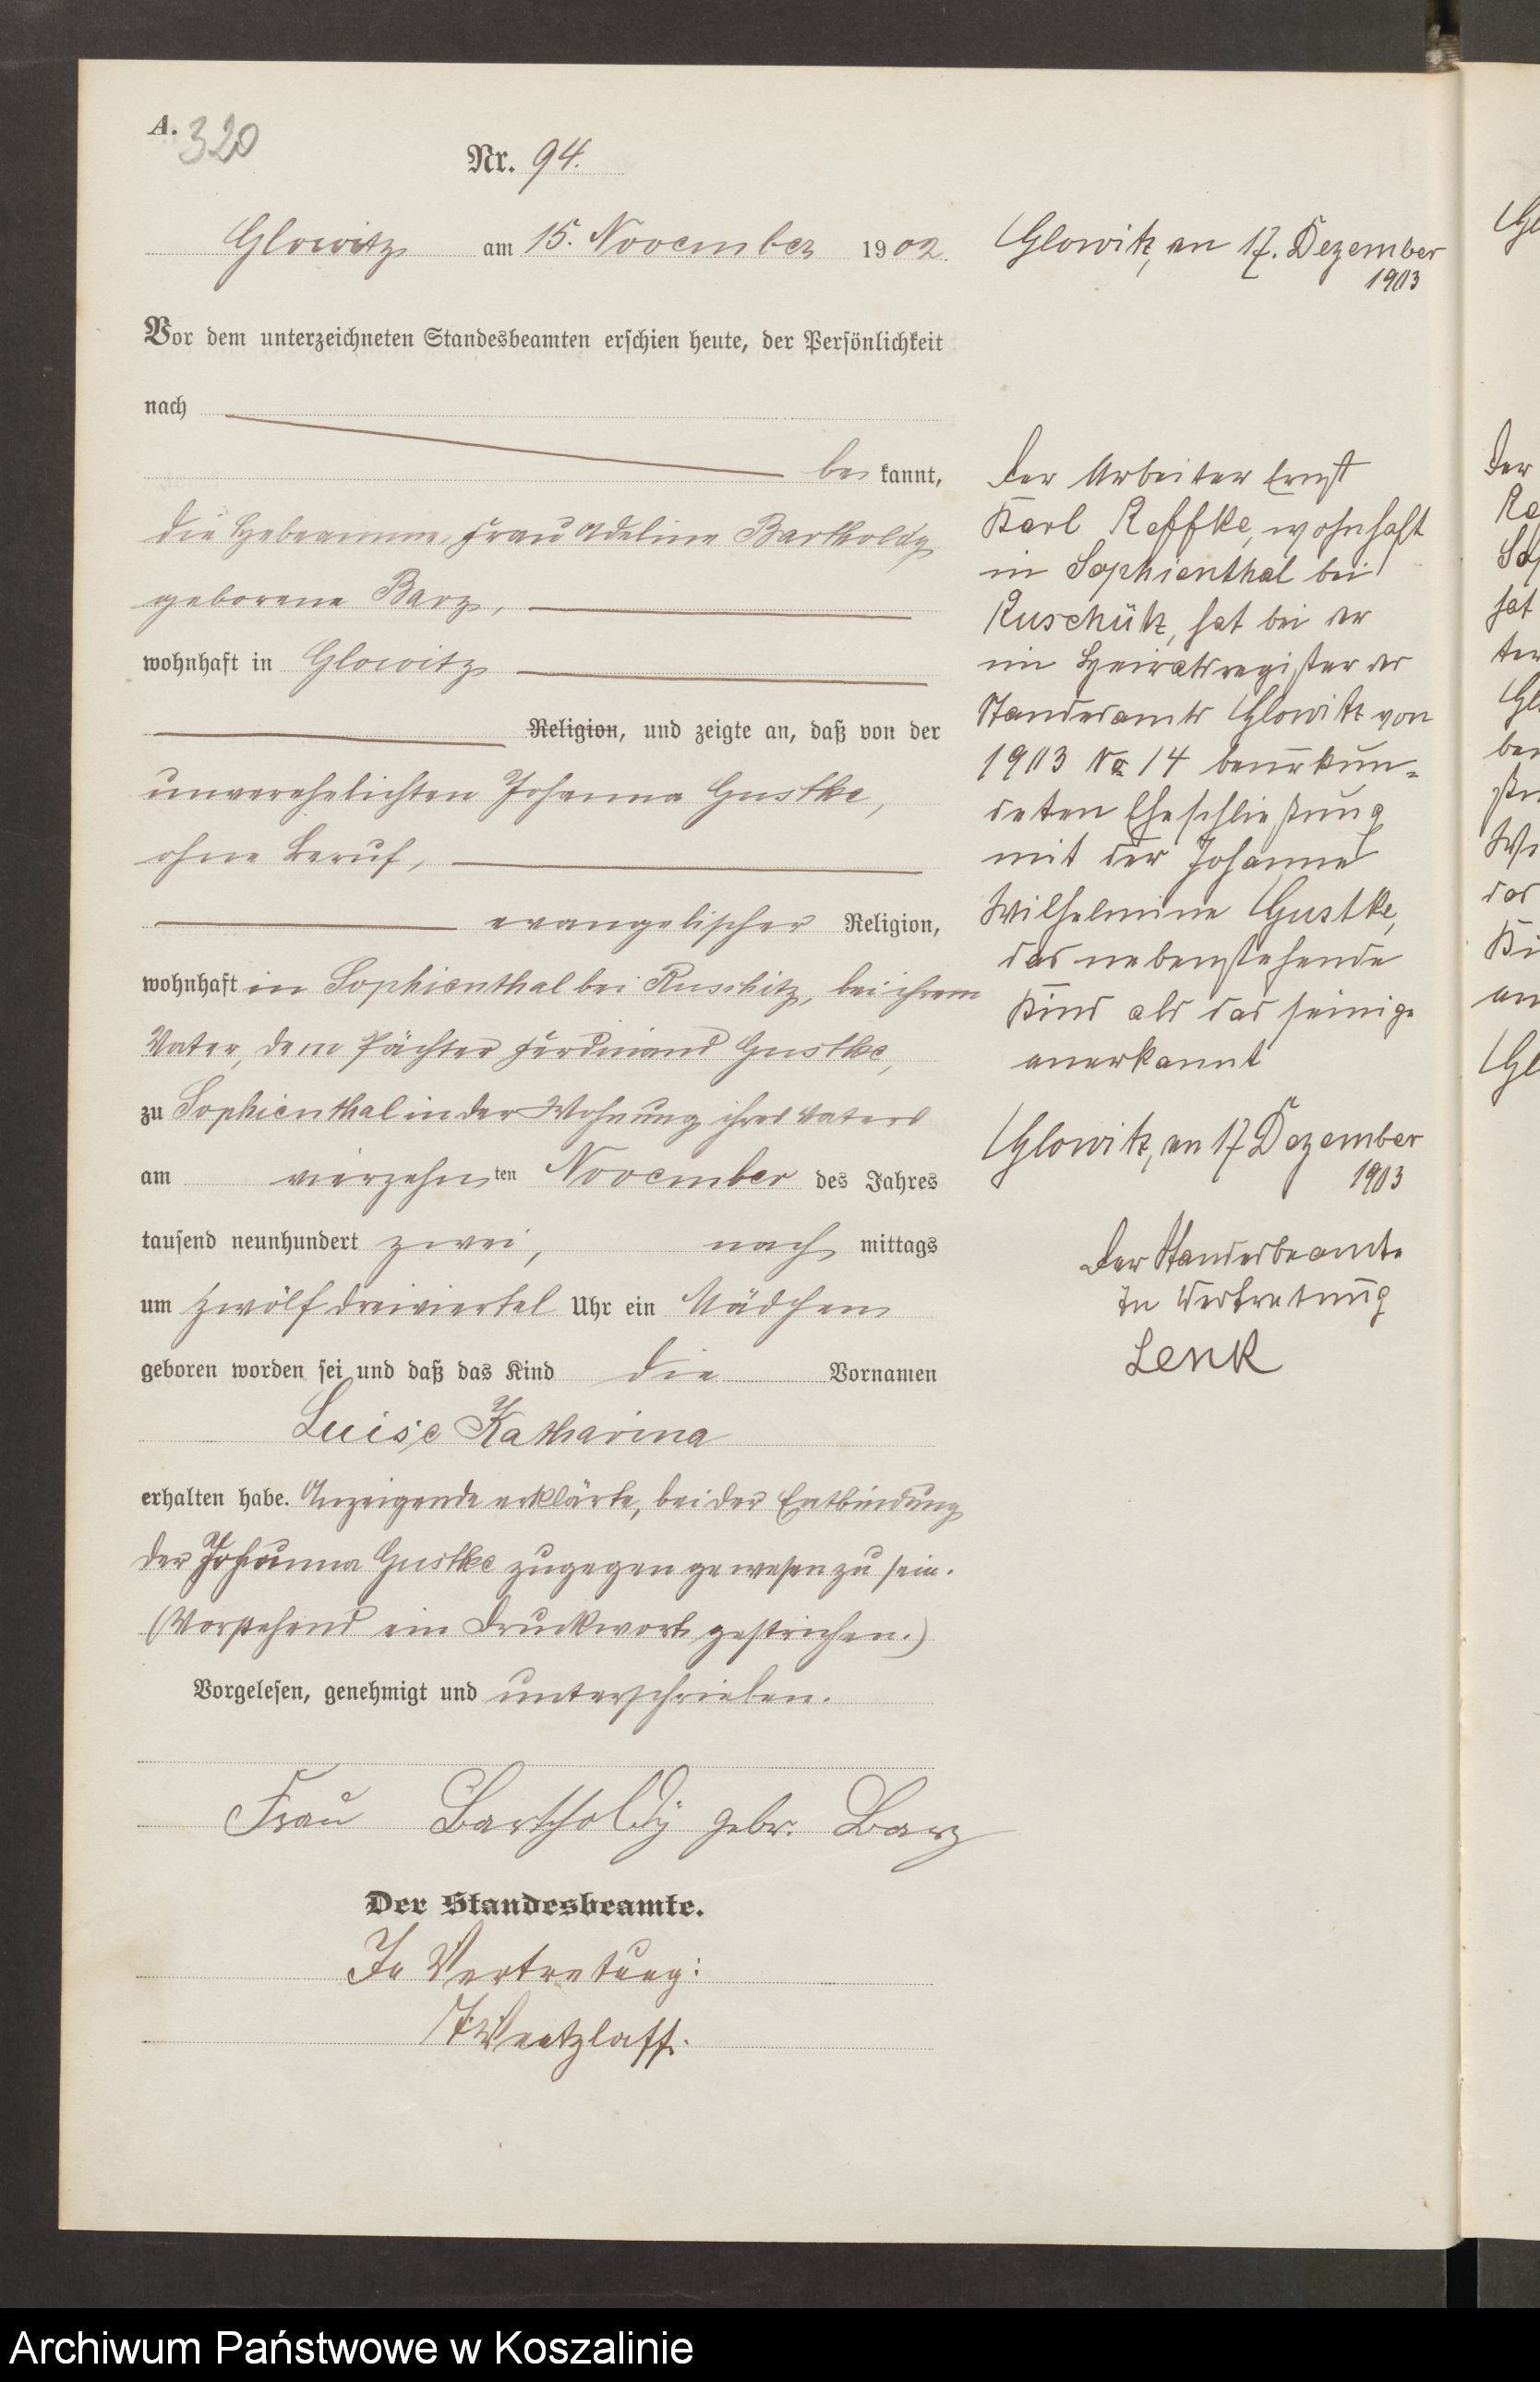 A.
320
Nr. 94.
Glowitz am 15. November 1902.
Vor dem unterzeichneten Standesbeamten erschien heute, der Persönlichkeit
nach
be kannt,
die Hebeamme, Frau Adeline Bartholdy
geborene Barz,
wohnhaft in Glowitz
Religion, und zeigte an, daß von der
unverehelichten Johanna Gustke,
ohne Beruf,
evangelischer Religion,
wohnhaft in Sophienthal bei Ruschitz, bei ihrem
Vater, dem Pächter Ferdinand Gustke,
zu Sophienthal in der Wohnung ihres Vaters
am vierzehnten November des Jahres
tausend neunhundert zwei, nach mittags
um zwölf dreiviertel Uhr ein Mädchen
geboren worden sei und daß das Kind die Vornamen
Luise Katharina
erhalten habe. Anzeigende erklärte, bei der Entbindung
der Johanna Gustke zugegen gewesen zu sein.
(Vorstehend ein Druckwort gestrichen.)
Vorgelesen, genehmigt und unterschrieben.
Frau Bartholdy gebr. Barz
Der Standesbeamte.
In Vertretung:
Wentzlaff.
Glowitz, am 17. Dezember
1903
Der Arbeiter Ernst
Karl Reffke, wohnhaft
in Sophienthal bei
Ruschütz, hat bei der
im Heiratsregister des
Standesamts Glowitz von
1903 No 14 beurkun-
deten Eheschließung
mit der Johanne
Wilhelmine Gustke,
das nebenstehende
Kind als das seinige
anerkannt
Glowitz, am 17 Dezember
1903
Der Standesbeamte
In Vertretung
Lenk
Archiwum Państwowe w Koszalinie